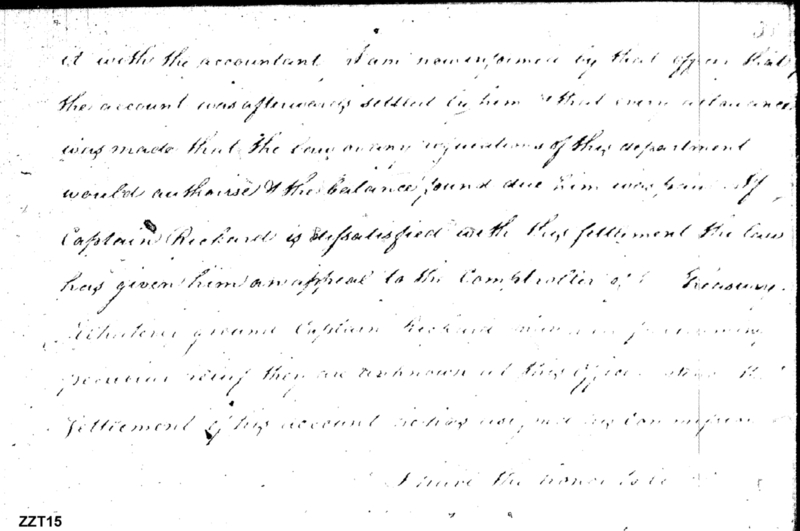 it with the accountant I am now informed by that officer that
the account was afterwards settled by him & that every allowance
was made that the law or any regulations of this department
would authorise & the balance found due him was paid If
Captain Rickard is dissatisfied with this settlement the law
has given him an appeal to the Comptroller of Treasury.
Whatever ground Captain Rickard
pecuniar relief they are unknown at this office
Settlement of his account
I have the honor to be
ZZT15